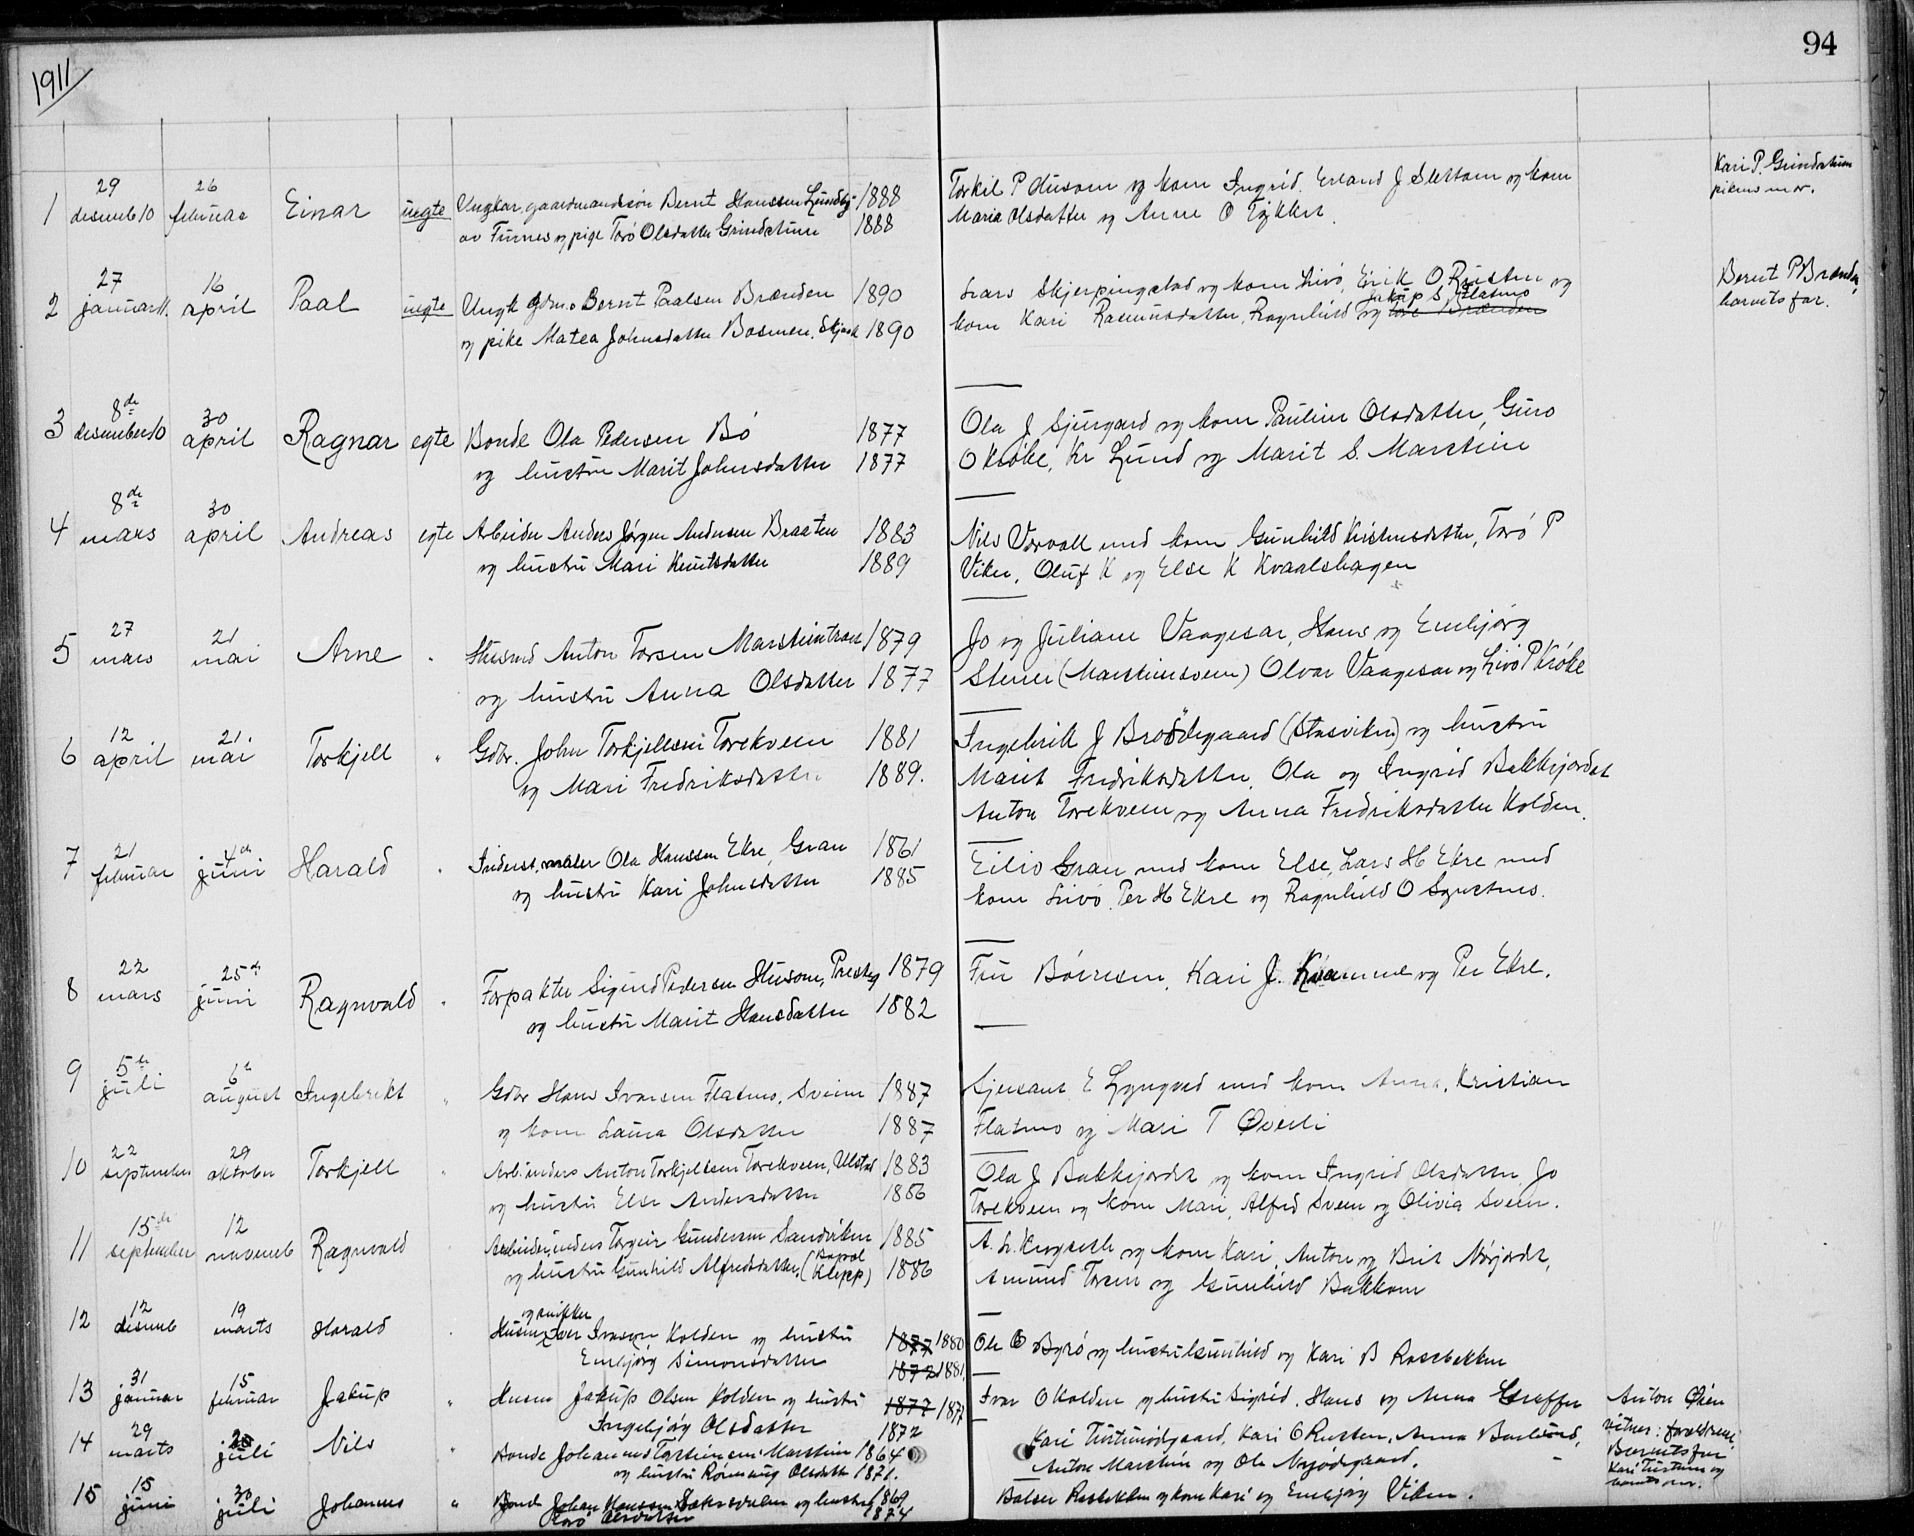 94
1911
1 29 desemb 10 26 februar Einar uegte Ungkar, gaardmandssön Bernt Hanssen Lundby 1888
av Furnes og pige Torö Olsdatter Grindstuen 1888
Torkil P Husom og kone Ingrid, Erland J Slettom og kone
Maria Olsdatter og Anne O
Kari P. Grindstuen
pikens mor.
2 27 januar 11. 16 april Paal uegte Ungk gdm.s Bernt Paalsen Brænden 1890
og pike Matea Johnsdatter Bosmen, Skjaak 1890
Lars Skjerpingstad og kone Livö, Erik O Rusten og
Jakup S Flatmo
kone Kari Rasmusdatter, Ragnhild og Tore Brænden
Bernt P Brænden
barnets far.
3 8de desember 10 30 april Ragnar egte Bonde Ola Pedersen Bö 1877
og hustru Marit Johnsdatter 1877
Ola J Sjurgard og kone Pauline Olsdatter, Guro
O Kröke, Kr Lund og Marit S. Marstein
4 8de mars 30 april Andreas egte Arbeider Anders Jörgen Andersen Braaten 1883
og hustru Mari Knutsdatter 1889
Nils Vorvall med kone Gunhild Kristensdatter, Torö P
Viken, Oluf K og Else K Kvaalshagen
5 27 mars 21 mai Arne " Husmd Anton Torsen Marsteintrøen 1879
og hustru Anna Olsdatter 1877
Jo og Juliane Vaagesar, Hans og Embjörg
Steine (Marsteinsveen) Olvar Vaagesar og Livö P Kröke
6 12 april 21 mai Torkjell " Gdbr. John Torkjellsen Torekveen 1881
og Mari Fredriksdatter 1889.
Ingebrikt J Broödegaard (Stasviken) og hustru
Marit Fredriksdatter, Ola og Ingrid Bakkejordet
Anton Torekveen og Anna Fredriksdatter Kolden.
7 21 februar 4de juni Harald " Inderst, maler Ola Hanssen Ekre, Gran 1861
og hustru Kari Johnsdatter 1885
Eiliv Gran med kone Else, Lars H Ekre med
kone Livö, Per H Ekre og Ragnhild O Synstnes.
8 22 mars 25de juni Ragnvald " Forpakter Sigurd Pedersen Husom, Presteg 1879
og hustru Marit Hansdatter 1882
Fru Börresen, Kari J. Kvamme og Per Ekre.
9 5te juli 6te august Ingebrikt " Gdbr Hans Ivarsen Flatmo, Sveim 1887
og kone Laura Olsdatter 1887
Sjersant E Lyngved med kone Anna, Kristian
Flatmo og Mari T Øverli
10 22 september 29 oktober Torkjell " Arb. inders Anton Torkjellsen Torekveen, Ulstad 1883
og hustru Else Andersdatter 1886
Ola J Bakkejordet og kone Ingrid Olsdatter, Jo
Torekveen og kone Mari, Alfred Sveen og Olivia Sveen.
11 15de september 12 novemb Ragnvald " Arbeider, inders Torgeir Gundersen Sandviken 1885
og hustru Gunhild Alfredsdatter, (Klepp) 1886
A. L. Krogseth og kone Kari, Anton og Brit Nörjordet,
Amund Torsen og Gunhild Bakkom
12 12 desemb 19 marts Harald " og snikker
Husm Iver Iversen Kolden og hustru 1877 1880
Embjörg Simonsdatter 1872 1881.
Ole O Byrö og hustru Gunhild og Kari B Rossbekken
13 31 januar 15 februar Jakup " Husm Jakup Olsen Kolden og hustru 1877 1877
Ingebjörg Olsdatter 1872
Ivar O Kolden og hustru Sigrid. Hans og Anna Graffer
14 29 marts juli Nils " Bonde Johannes Torsteinsen Marstein 1864
og hustru Rönnaug Olsdatter 1871.
Kari Tustumödegaard, Kari O Rusten, Anna
Anton Marstein og Ole Nrjødegaard.
Anton Øien
vitner: foreldrene
Barnets far
Kari og
barnets mor.
15 15 juni 30 juli Johannes " Bonde Johan Hanssen og hustru 1869
Torö Olsdatter 1874
Balser Rossbekken og kone Kari og Embjörg Viken.